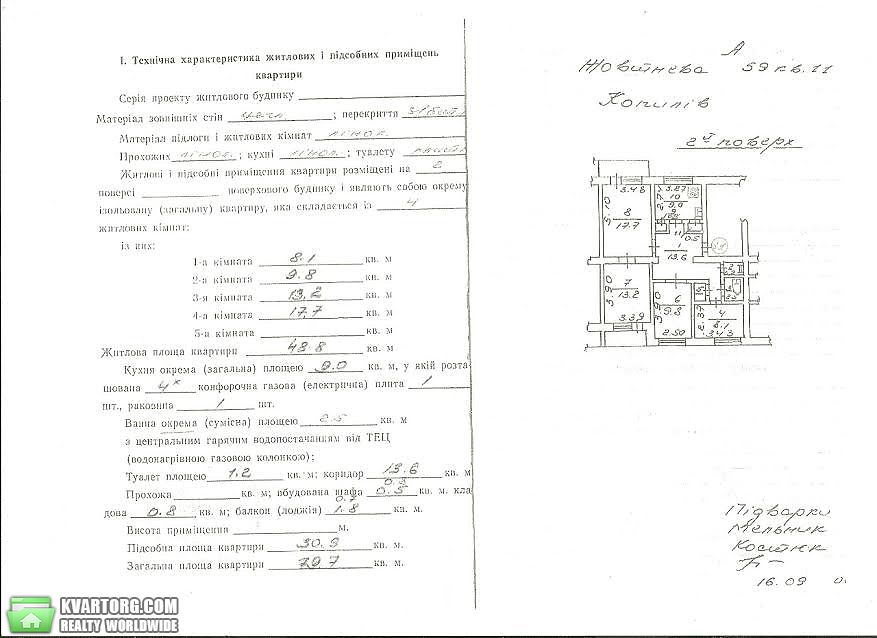 І. Технічна характеристика житлових і підсобних приміщень
квартири
Серія проекту житлового будинку
Матеріал зовнішніх стін цегл. ; перекриття з/бит
Матеріал підлоги і житлових кімнат лінол.
Прохожих лінол. ; кухні лінол. ; туалету
Житлові і підсобні приміщення квартири розміщені на 2
поверсі поверхового будинку і являють собою окрему
ізольовану (загальну) квартиру, яка складається із 4
житлових кімнат:
із них:
1-а кімната 8.1 кв. м
2-а кімната 9.8 кв. м
3-я кімната 13.2 кв. м
4-а кімната 17.7 кв. м
5-а кімната кв. м
Житлова площа квартири 48.8 кв. м
Кухня окрема (загальна) площею 9.0 кв. м, у якій розта-
шована 4х конфорочна газова (електрична) плита 1
шт., раковина 1 шт.
Ванна окрема (сумісна) площею 2.5 кв. м
з центральним гарячим водопостачанням від ТЕЦ
(водонагрівною газовою колонкою);
Туалет площею 1.2 кв. м; коридор 13.6 кв. м
0.3
Прохожа кв. м; вбудована шафа 0.5 кв. м. кла-
0.7
дова 0.8 кв. м; балкон (лоджія) 1.8 кв. м.
Висота приміщення м.
Підсобна площа квартири 30.9 кв. м.
Загальна площа квартири 79.7 кв. м.
А
Жовтнева 59 кв. 11
Копилів
2й поверх
3.48
3.27
10
9.0
5.10
8
17.7
11
0.5
1
13.6
7
13.2
3.90
3.39
6
9.8
3.90
2.50
4
8.1
2.37
3.43
Підварки
Мельник
Костюк
16.09
KVARTORG.COM
REALTY WORLDWIDE